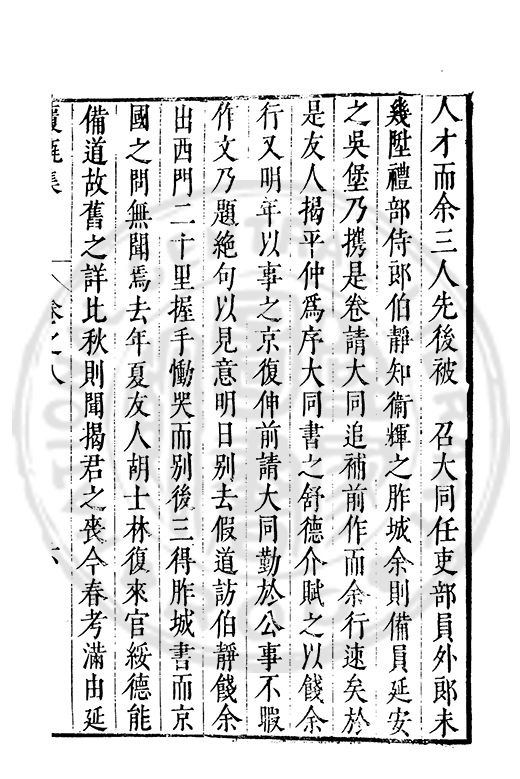 人才而余三人先後被　召大同任吏部員外郎未
幾陞禮部侍郎伯靜知衛輝之胙城余則備員延安
之吳堡乃携是卷請大同追補前作而余行速矣於
是友人揭平仲爲序大同書之舒德介賦之以餞余
行又明年以事之京復伸前請大同勤於公事不暇
作文乃題絶句以見意明日别去假道訪伯靜餞余
出西門二十里握手慟哭而别後三得胙城書而京
國之問無聞焉去年夏友人胡士林復來官綏德能
備道故舊之詳比秋則聞揭君之喪今春考滿由延
卷之八
六